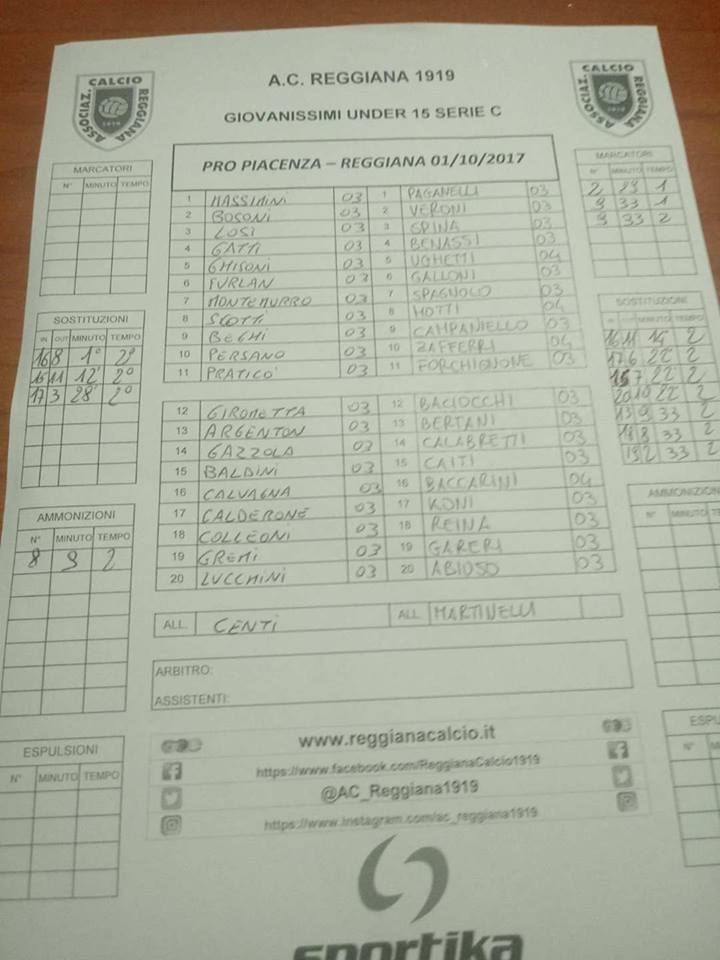 ASSOCIAZ. CALCIO REGGIANA
1919
A.C. REGGIANA 1919
ASSOCIAZ. CALCIO REGGIANA
1919
GIOVANISSIMI UNDER 15 SERIE C
PRO PIACENZA – REGGIANA 01/10/2017
MARCATORI
N° MINUTO TEMPO
SOSTITUZIONI
IN OUT MINUTO TEMPO
16 8 1° 2°
15 11 12' 2°
17 3 28' 2°
AMMONIZIONI
N° MINUTO TEMPO
8 9 2
ESPULSIONI
N° MINUTO TEMPO
1 MASSIMINI 03 1 PAGANELLI 03
2 BOSONI 03 2 VERONI 03
3 LOSI 03 3 SPINA 03
4 GATTI 03 4 BENASSI 03
5 GHISONI 03 5 UGHETTI 04
6 FURLAN 03 6 GALLONI 03
7 MONTEMURRO 03 7 SPAGNOLO 03
8 SCOTTI 03 8 MOTTI 04
9 BEGHI 03 9 CAMPANIELLO 03
10 PERSANO 03 10 ZAFFERRI 04
11 PRATICO' 03 11 FORCHIGNONE 03
12 GIROMETTA 03 12 BACIOCCHI 03
13 ARGENTON 03 13 BERTANI 03
14 GAZZOLA 03 14 CALABRETTI 03
15 BALDINI 03 15 CAITI 03
16 CALVAGNA 03 16 BACCARINI 04
17 CALDERONE 03 17 KONI 03
18 COLLEONI 03 18 REINA 03
19 GREMI 03 19 GARERI 03
20 LUCCHINI 03 20 ABIOSO 03
ALL. CENTI ALL. MARTINELLI
ARBITRO:
ASSISTENTI:
www.reggianacalcio.it
https://www.facebook.com/ReggianaCalcio1919
@AC_Reggiana1919
https://www.instagram.com/ac_reggiana1919
sportika
MARCATORI
N° MINUTO TEMPO
2 29 1
9 33 1
9 33 2
SOSTITUZIONI
MINUTO TEMPO
16 11 14 2
17 6 22 2
7 22 2
20 10 22 2
13 9 33 2
18 8 33 2
19 2 33 2
AMMONIZION
N° MINUTO TEMPO
ESPU
N° MINUTO